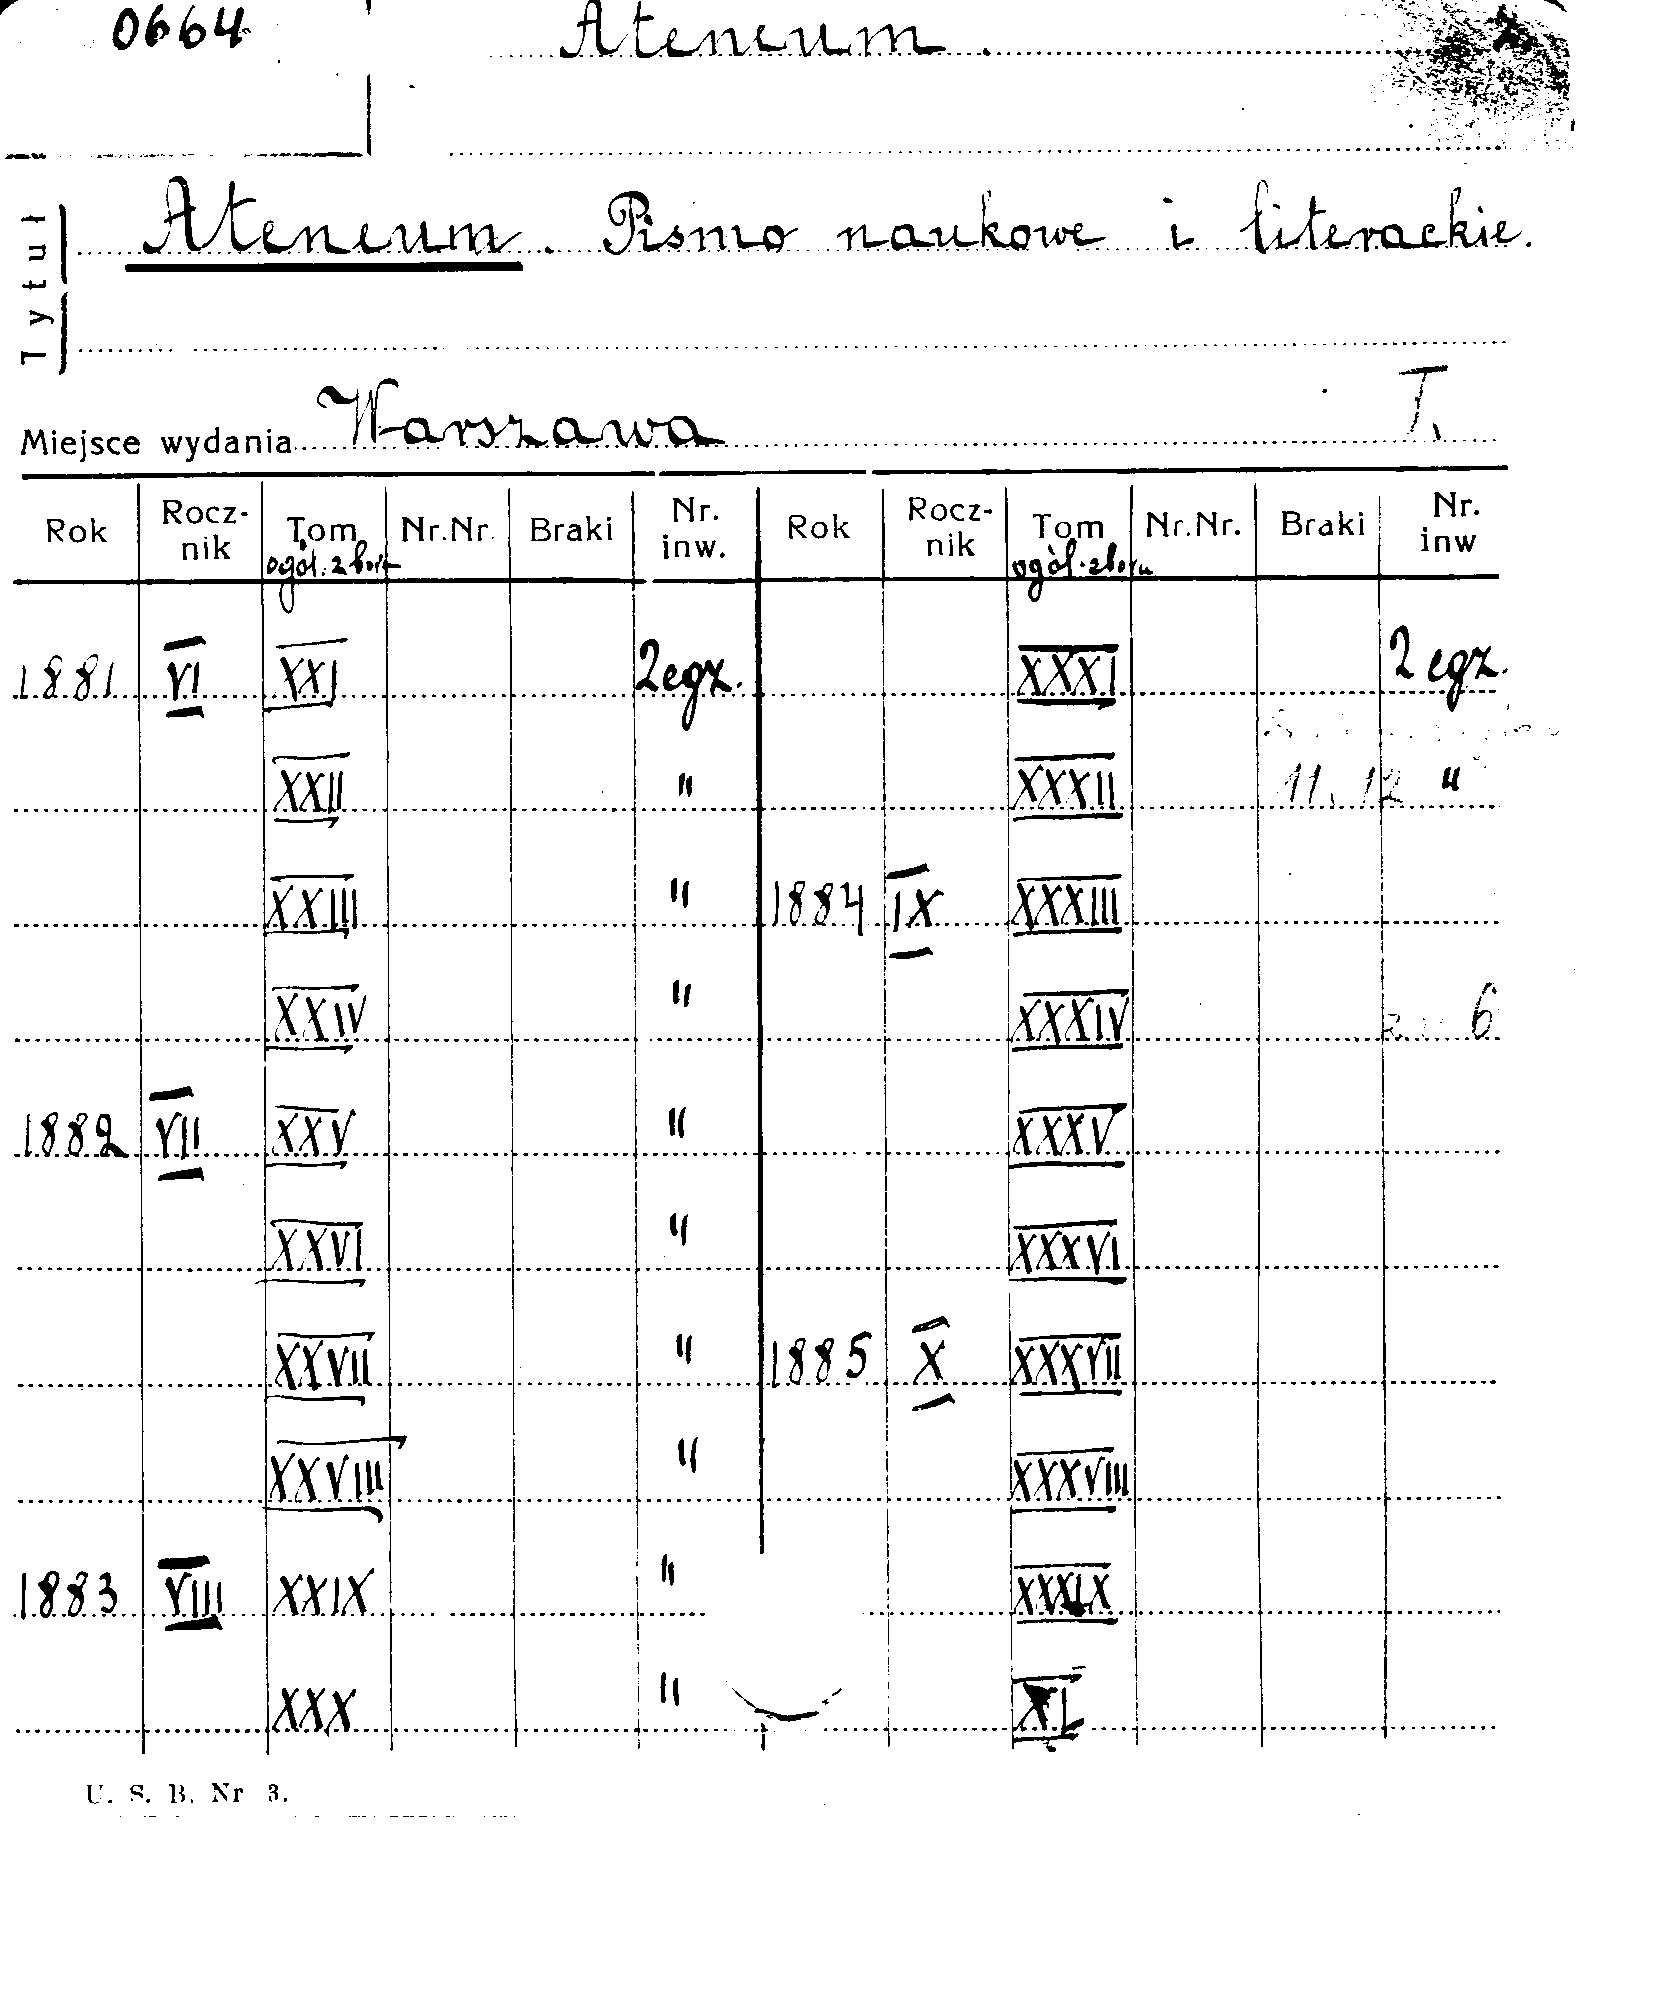 0664
Ateneum.
Tytuł
Ateneum. Pismo naukowe i literackie.
Miejsce wydania Warszawa T.
Rok Rocz-nik Tom ogól. zbioru Nr.Nr. Braki Nr. inw. Rok Rocz-nik Tom ogól. zbioru Nr.Nr. Braki Nr. inw
1881 VI XXI 2 egz. XXXI 2 egz.
XXII " XXXII 11. 12 "
XXIII " 1884 IX XXXIII
XXIV " XXXIV 6
1882 VII XXV " XXXV
XXVI " XXXVI
XXVII " 1885 X XXXVII
XXVIII " XXXVIII
1883 VIII XXIX " XXXIX
XXX " XL
U. S. B. Nr 3.